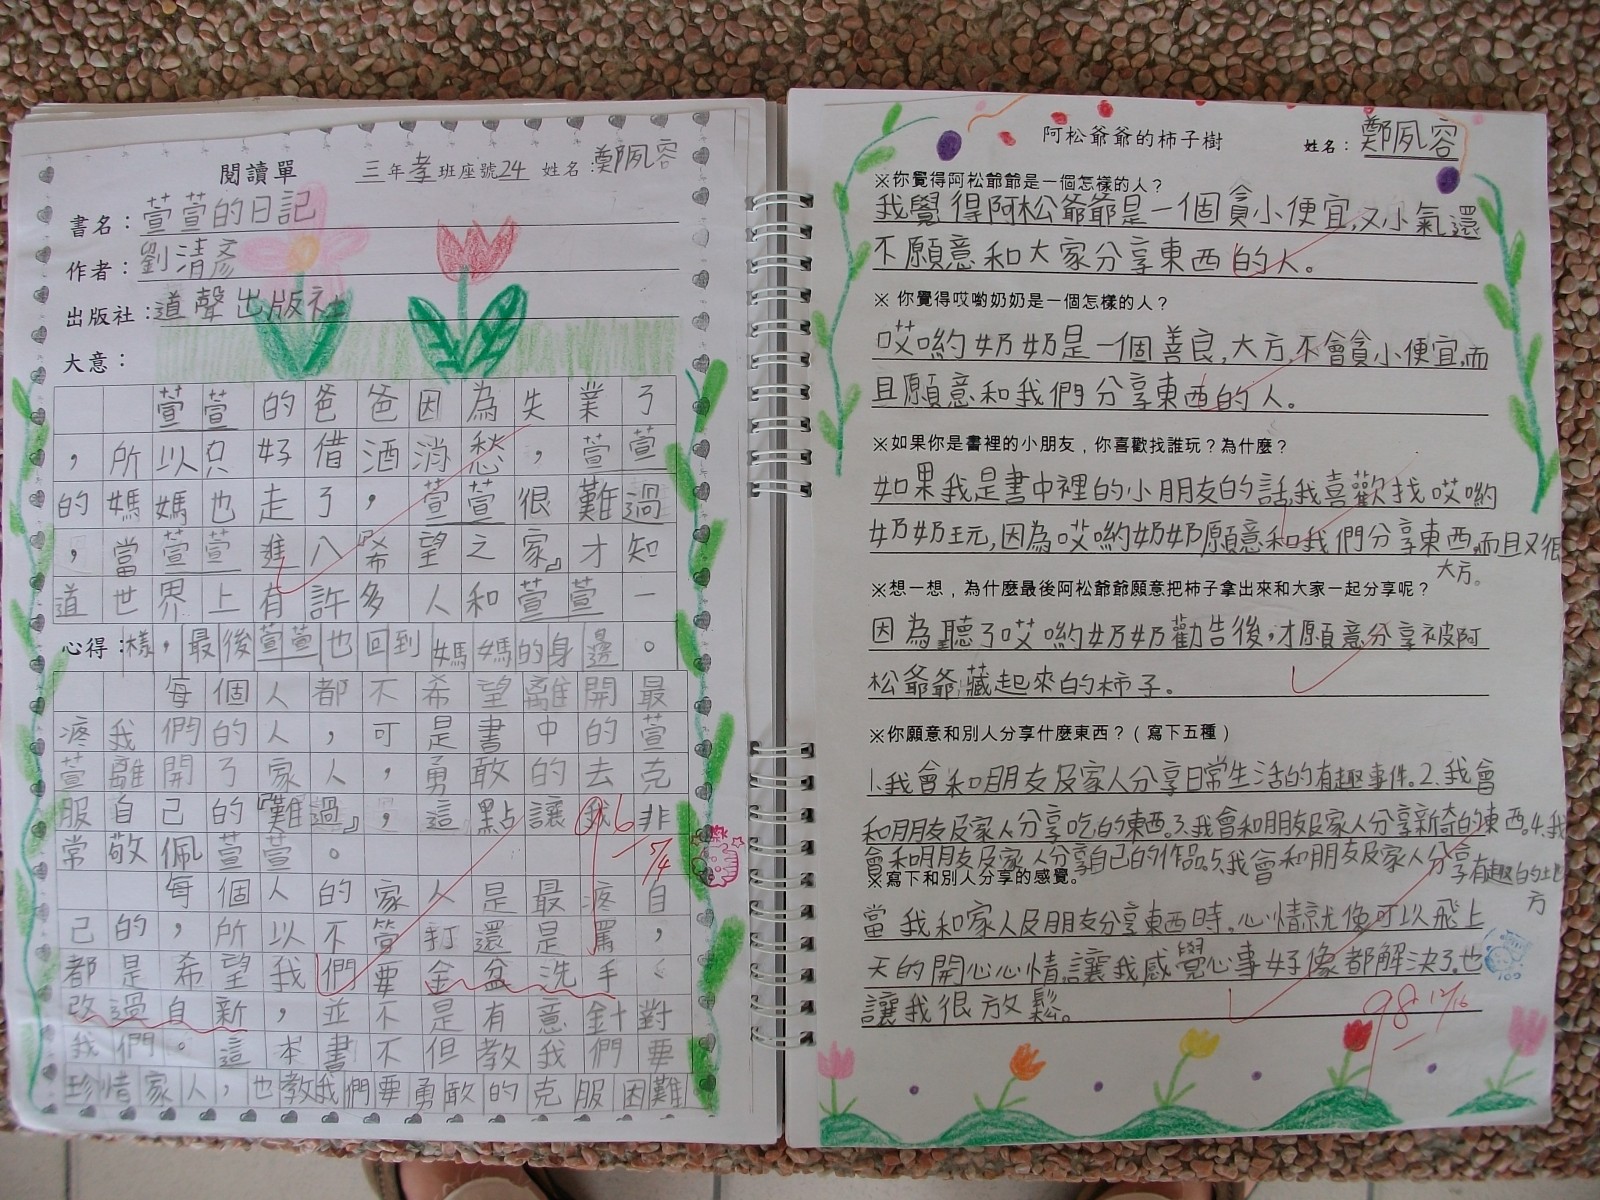 閱讀單 三年孝班座號24 姓名：鄭夙容
書名：萱萱的日記
作者：劉清彥
出版社：道聲出版社
大意：
萱萱的爸爸因為失業了
，所以只好借酒消愁，萱萱
的媽媽也走了，萱萱很難過
，當萱萱進入『希望之家』才知
道世界上有許多人和萱萱一
心得：樣，最後萱萱也回到媽媽的身邊。
每個人都不希望離開最
疼我們的人，可是書中的萱
萱離開了家人，勇敢的去克
服自己的『難過』，這點讓我非
常敬佩萱萱。
96
7/4
每個人的家人是最疼自
己的，所以不管打還是罵，
都是希望我們要金盆洗手、
改過自新，並不是有意針對
我們。這本書不但教我們要
珍惜家人，也教我們要勇敢的克服困難
阿松爺爺的柿子樹 姓名：鄭夙容
※你覺得阿松爺爺是一個怎樣的人？
我覺得阿松爺爺是一個貪小便宜，又小氣還
不願意和大家分享東西的人。
※ 你覺得哎喲奶奶是一個怎樣的人？
哎喲奶奶是一個善良，大方，不會貪小便宜，而
且願意和我們分享東西的人。
※如果你是書裡的小朋友，你喜歡找誰玩？為什麼？
如果我是書中裡的小朋友的話，我喜歡找哎喲
奶奶玩，因為哎喲奶奶願意和我們分享東西，而且又很
大方。
※想一想，為什麼最後阿松爺爺願意把柿子拿出來和大家一起分享呢？
因為聽了哎喲奶奶勸告後，才願意分享被阿
松爺爺藏起來的柿子。
※你願意和別人分享什麼東西？（寫下五種）
1.我會和朋友及家人分享日常生活的有趣事件。2.我會
和朋友及家人分享吃的東西。3.我會和朋友及家人分享新奇的東西。4.我
會和朋友及家人分享自己的作品。5.我會和朋友及家人分享有趣的地
方
※寫下和別人分享的感覺。
當我和家人及朋友分享東西時。心情就像可以飛上
天的開心心情讓我感覺心事好像都解決了。也
讓我很放鬆。
98 12/16